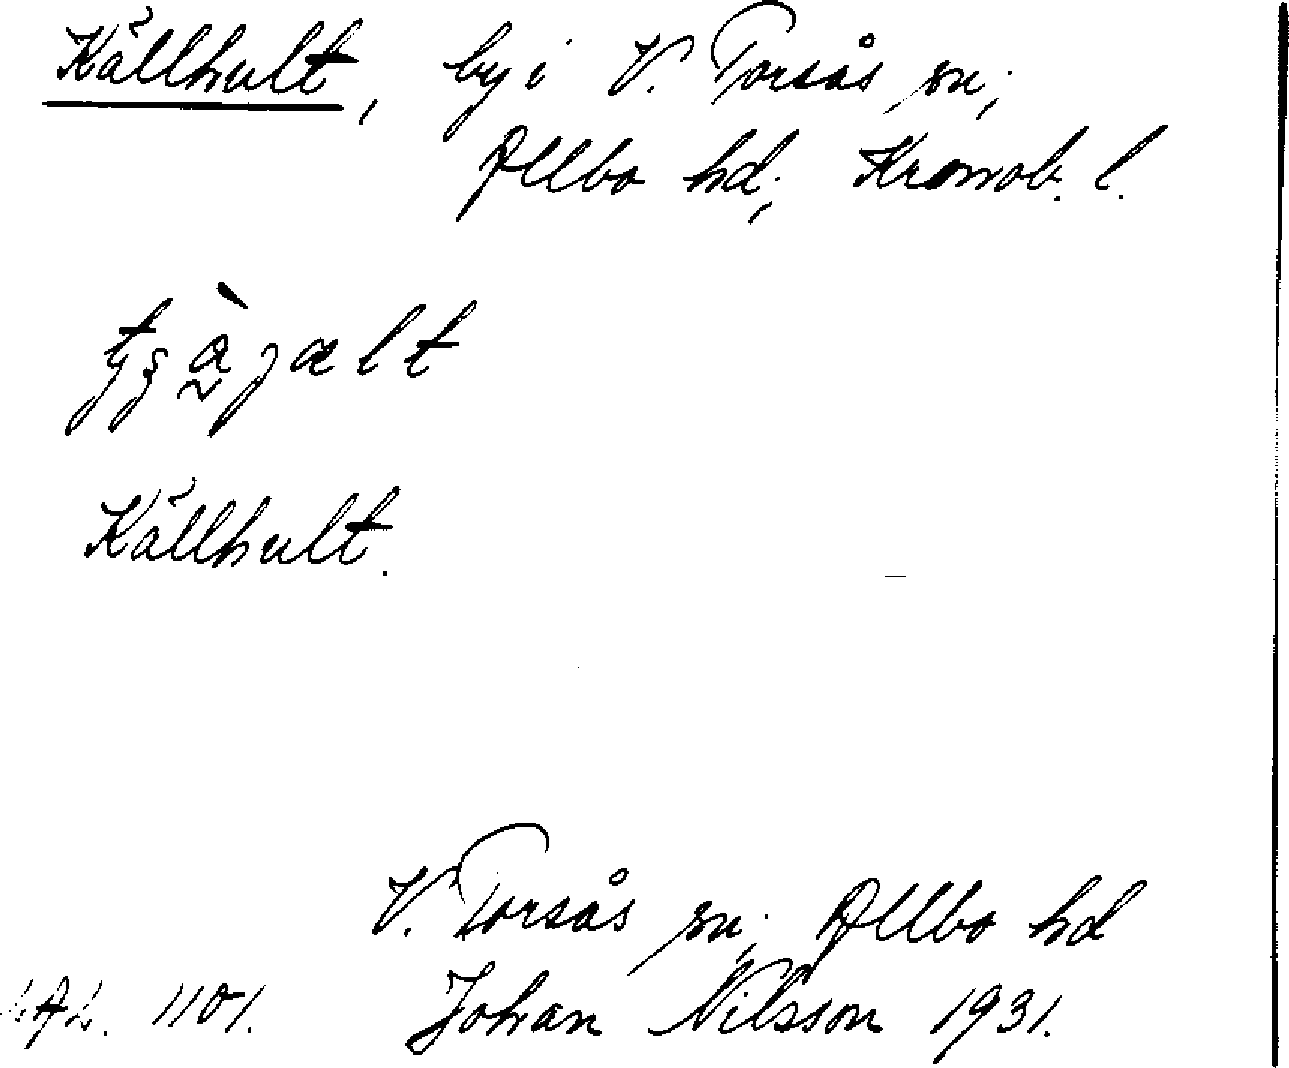 Källhult, by i V. Torsås sn;
Allbo hd; Kronob. l.
Källhult.
V. Torsås sn; Allbo hd
Johan Nilsson 1931.
1101.